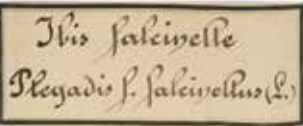 Ibis falcinelle
Plegadis f. falcinellus (L.)